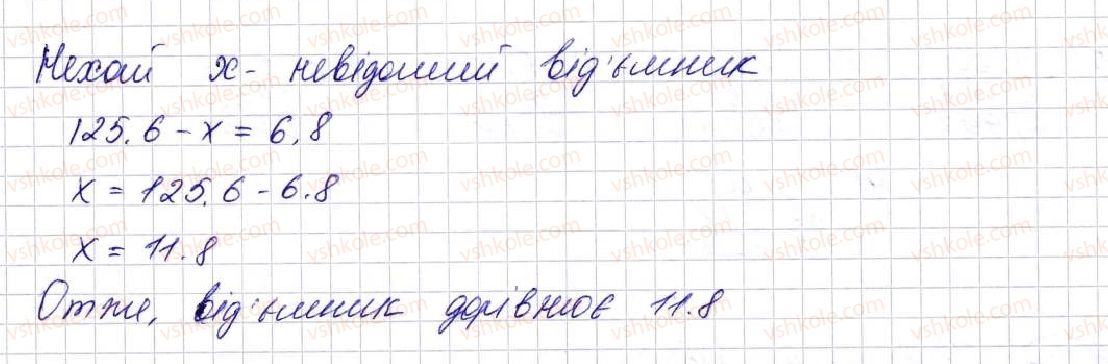 Нехай x - невідомий від'ємник
125.6 - x = 6,8
x = 125.6 - 6.8
x = 11.8
Отже, від'ємник дорівнює 11.8